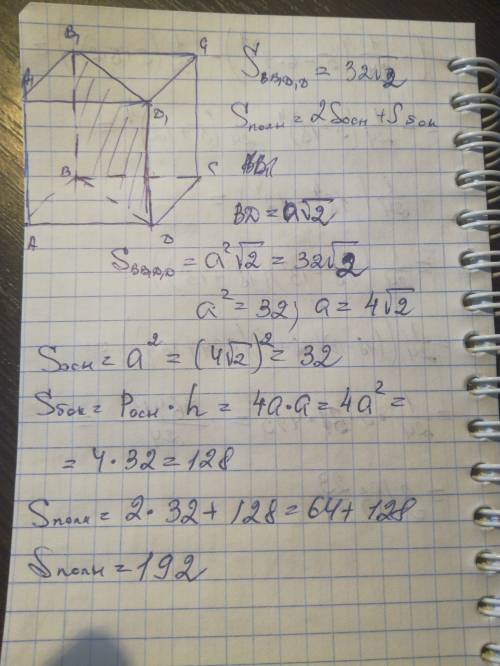 B₁ C₁
A₁ D₁
B C
A D
S_BB₁D₁D = 32√2
Sполн = 2Sосн + Sбок
BD = a√2
S_BB₁D₁D = a²√2 = 32√2
a² = 32; a = 4√2
Sосн = a² = (4√2)² = 32
Sбок = Pосн · h = 4a · a = 4a² =
= 4 · 32 = 128
Sполн = 2 · 32 + 128 = 64 + 128
Sполн = 192